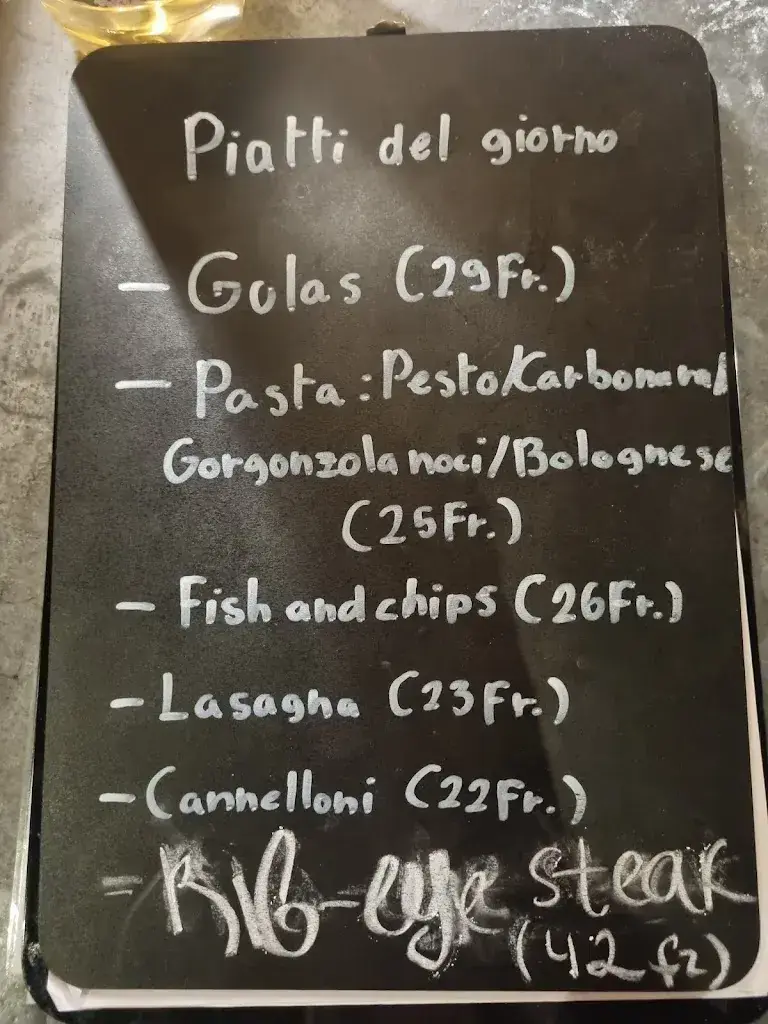 Piatti del giorno
- Gulas (29Fr.)
- Pasta: Pesto/Karbonara/
Gorgonzola noci/Bolognese
(25Fr.)
- Fish and chips (26Fr.)
- Lasagna (23Fr.)
- Cannelloni (22Fr.)
- RIB-eye steak
(42 fr)